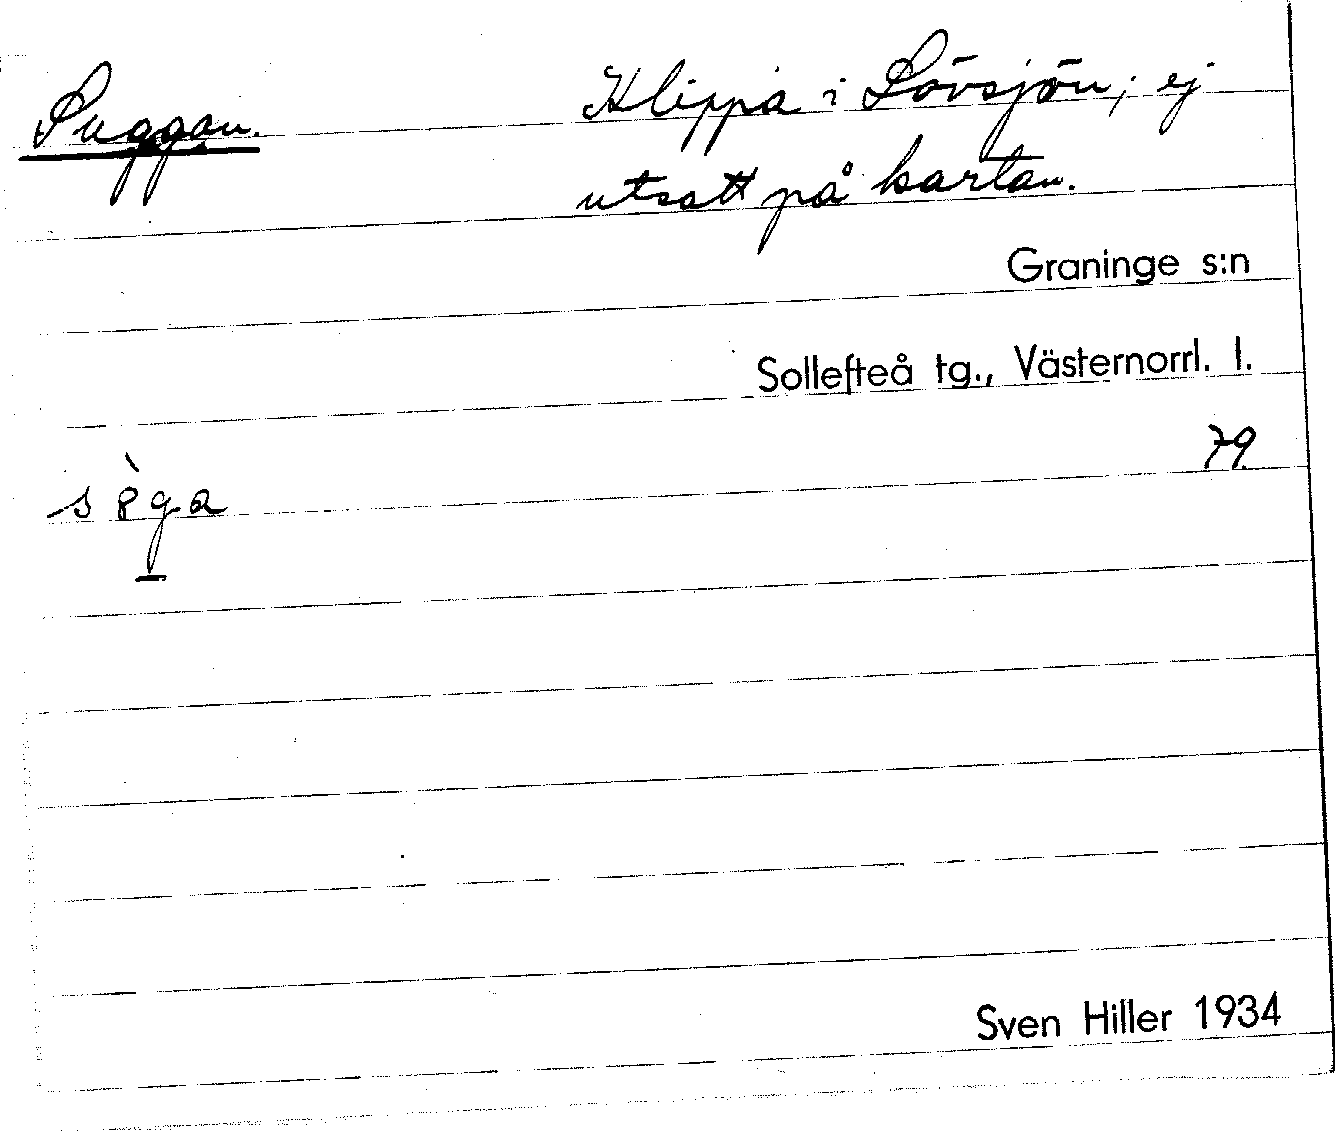 Suggan. Klippa i Lövsjön; ej
utsatt på kartan.
Graninge s:n
Sollefteå tg., Västernorrl. l.
79.
s 8̀g̲a
Sven Hiller 1934